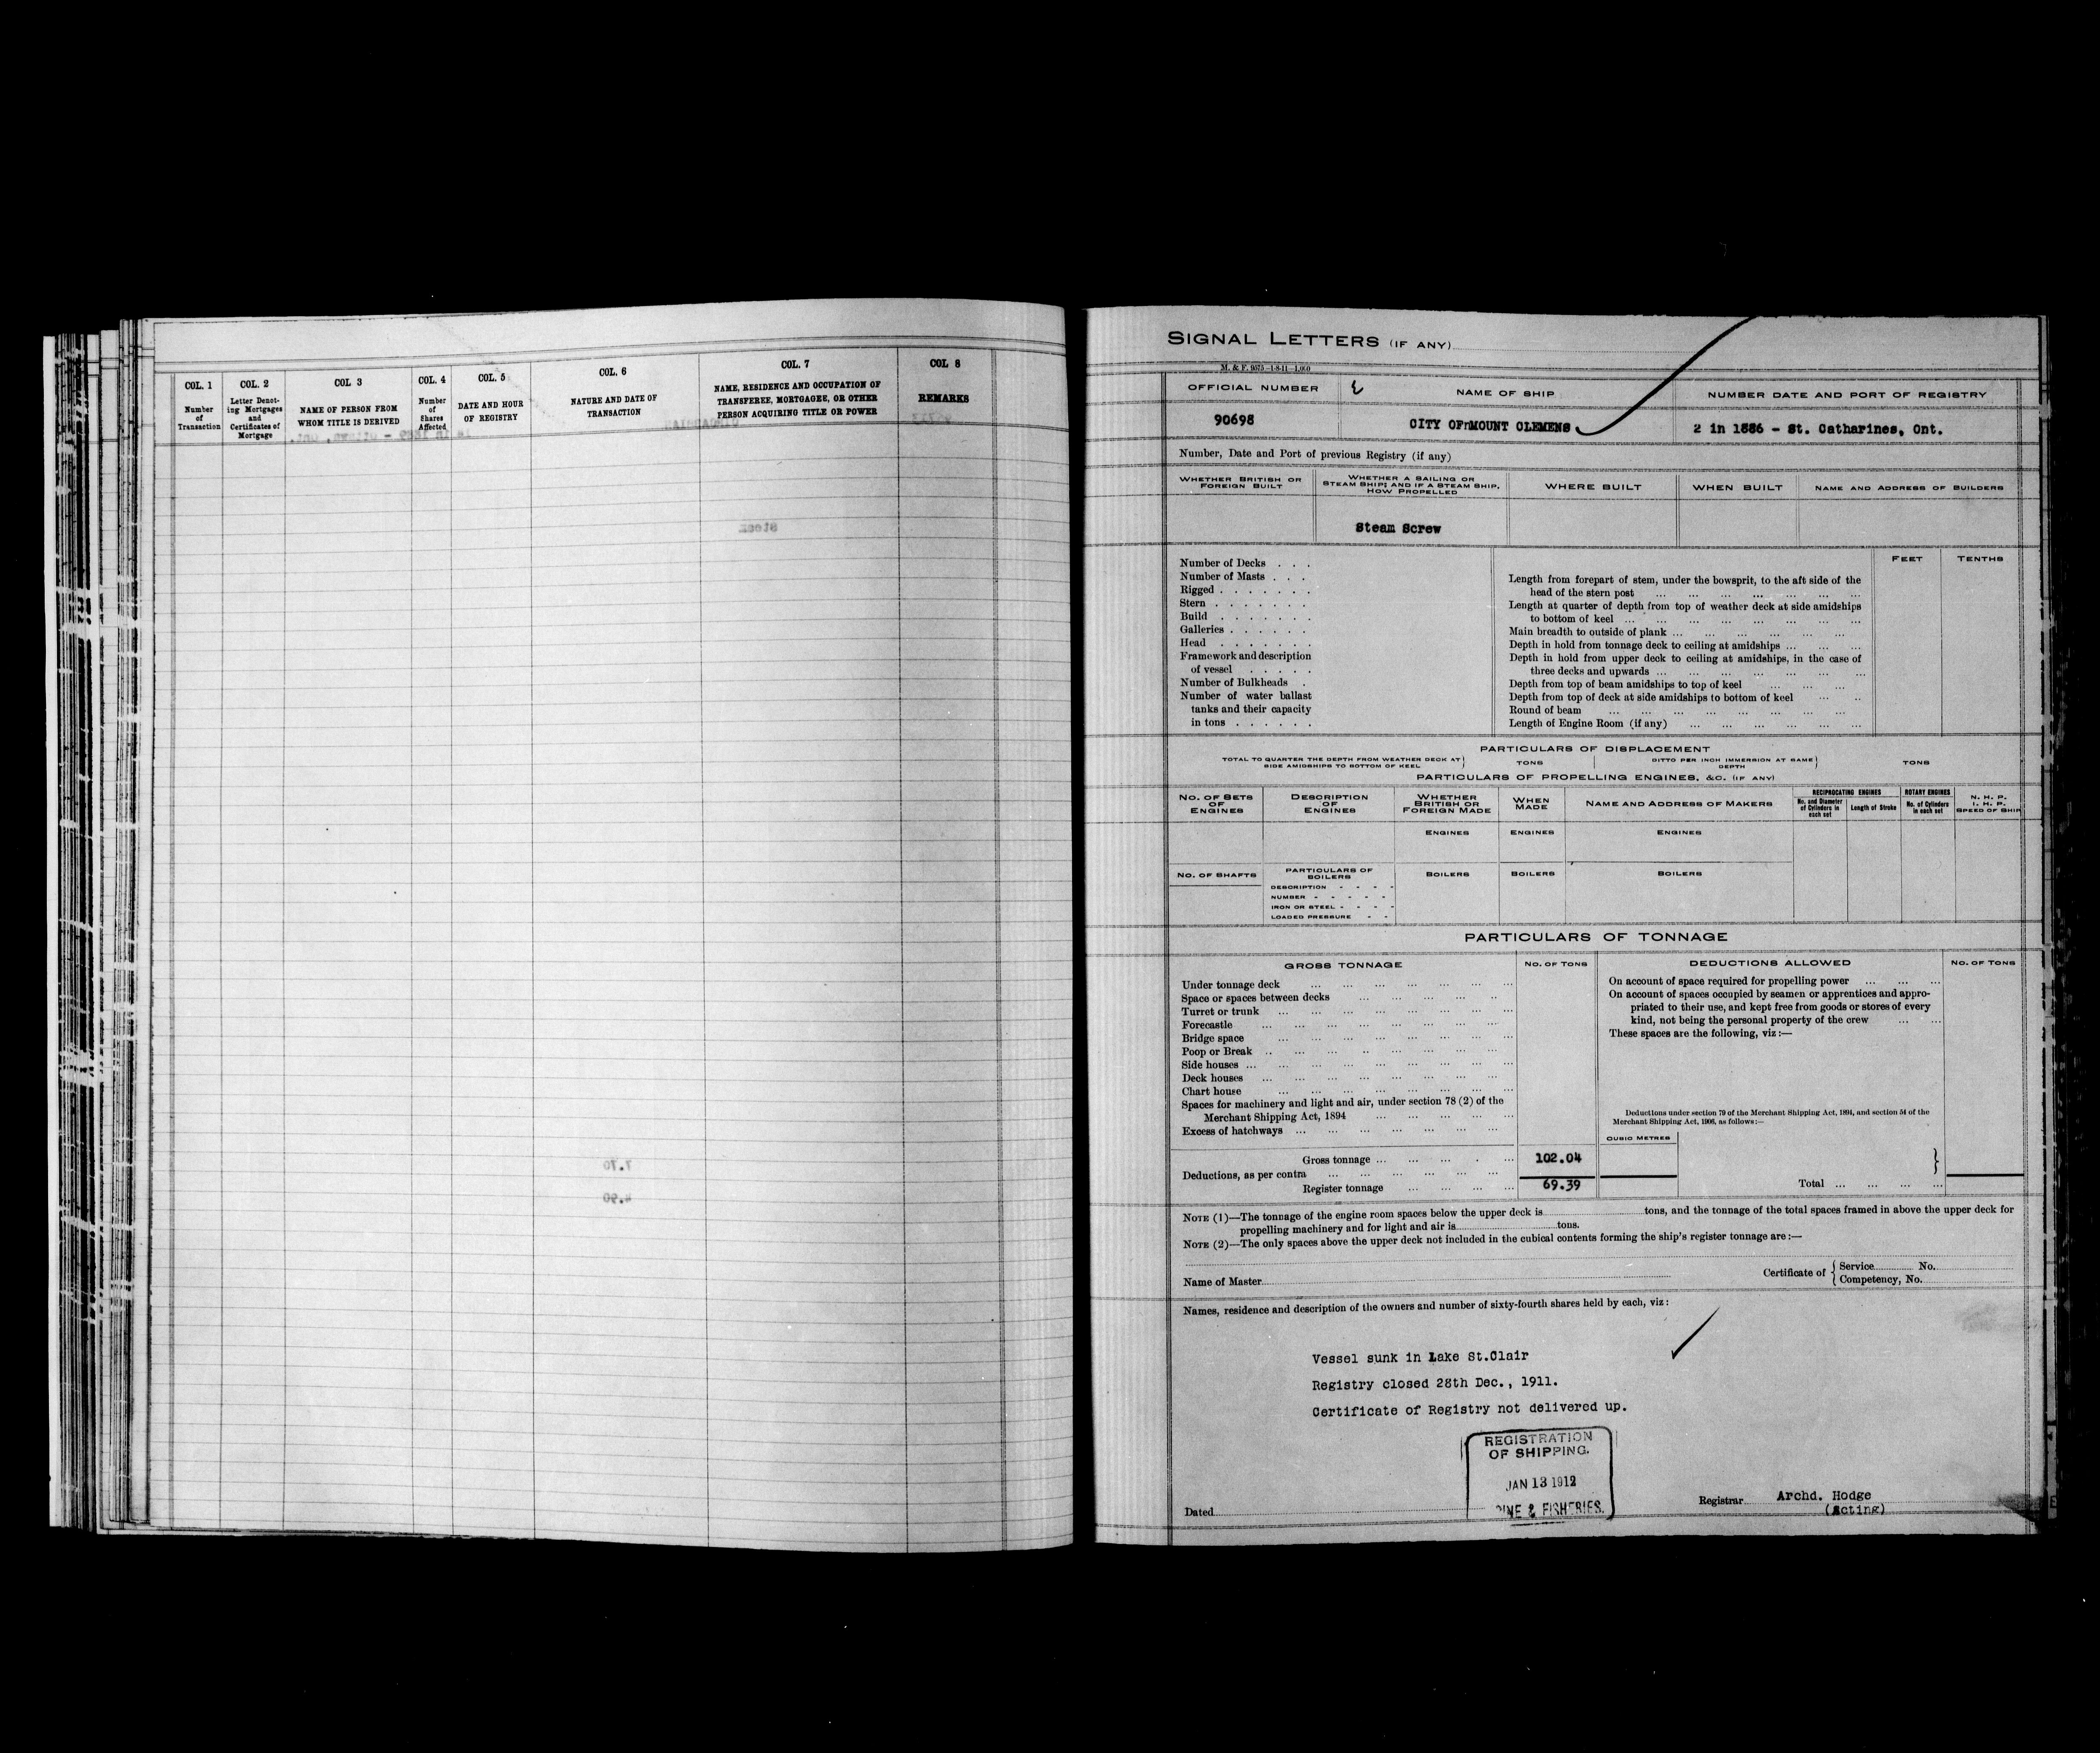 COL. 1
Number
of
Transaction
COL. 2
Letter Denot-
ing Mortgages
and
Certificates of
Mortgage
COL 3
NAME OF PERSON FROM
WHOM TITLE IS DERIVED
COL. 4
Number
of
Shares
Affected
COL. 5
DATE AND HOUR
OF REGISTRY
COL. 6
NATURE AND DATE OF
TRANSACTION
COL. 7
NAME, RESIDENCE AND OCCUPATION OF
TRANSFEREE, MORTGAGEE, OR OTHER
PERSON ACQUIRING TITLE OR POWER
COL 8
REMARKS
SIGNAL LETTERS (IF ANY)
M. & F. 9575—1-8-11—1,000
OFFICIAL NUMBER
NAME OF SHIP
NUMBER DATE AND PORT OF REGISTRY
90698
CITY OF MOUNT CLEMENS
2 in 1886 - St. Catharines, Ont.
Number, Date and Port of previous Registry (if any)
WHETHER BRITISH OR
FOREIGN BUILT
WHETHER A SAILING OR
STEAM SHIP; AND IF A STEAM SHIP,
HOW PROPELLED
WHERE BUILT
WHEN BUILT
NAME AND ADDRESS OF BUILDERS
Steam Screw
Number of Decks . . .
Number of Masts . . .
Rigged . . . . . . .
Stern . . . . . . .
Build . . . . . . .
Galleries . . . . . .
Head . . . . . . .
Framework and description
of vessel . . . . .
Number of Bulkheads .
Number of water ballast
tanks and their capacity
in tons . . . . . .
FEET
TENTHS
Length from forepart of stem, under the bowsprit, to the aft side of the
head of the stern post ... ... ... ... ... ... ...
Length at quarter of depth from top of weather deck at side amidships
to bottom of keel ... ... ... ... ... ... ... ...
Main breadth to outside of plank ... ... ... ... ... ...
Depth in hold from tonnage deck to ceiling at amidships ... ... ...
Depth in hold from upper deck to ceiling at amidships, in the case of
three decks and upwards ... ... ... ... ... ... ...
Depth from top of beam amidships to top of keel ... ... ...
Depth from top of deck at side amidships to bottom of keel ... ..
Round of beam ... ... ... ... ... ... ... ...
Length of Engine Room (if any) ... ... ... ... ... ...
PARTICULARS OF DISPLACEMENT
TOTAL TO QUARTER THE DEPTH FROM WEATHER DECK AT
SIDE AMIDSHIPS TO BOTTOM OF KEEL
TONS
DITTO PER INCH IMMERSION AT SAME
DEPTH
TONS
PARTICULARS OF PROPELLING ENGINES, &C. (IF ANY)
NO. OF SETS
OF
ENGINES
DESCRIPTION
OF
ENGINES
WHETHER
BRITISH OR
FOREIGN MADE
WHEN
MADE
NAME AND ADDRESS OF MAKERS
RECIPROCATING ENGINES
No. and Diameter
of Cylinders in
each set
Length of Stroke
ROTARY ENGINES
No. of Cylinders
in each set
N. H. P.
I. H. P.
SPEED OF SHIP
ENGINES
ENGINES
ENGINES
NO. OF SHAFTS
PARTICULARS OF
BOILERS
DESCRIPTION - - - -
NUMBER - - - - -
IRON OR STEEL - - - -
LOADED PRESSURE - -
BOILERS
BOILERS
BOILERS
PARTICULARS OF TONNAGE
GROSS TONNAGE
NO. OF TONS
DEDUCTIONS ALLOWED
NO. OF TONS
Under tonnage deck ... ... ... ... ... ... ...
Space or spaces between decks ... ... ... ... ..
Turret or trunk ... ... ... ... ... ... ... ...
Forecastle ... ... ... ... ... ... ... ...
Bridge space ... ... ... ... ... ... ... ...
Poop or Break .. ... ... .. ... ... ... ...
Side houses ... ... ... ... ... ... ... ... ...
Deck houses ... ... ... ... ... ... ... ...
Chart house ... ... ... ... ... ... ... ...
Spaces for machinery and light and air, under section 78 (2) of the
Merchant Shipping Act, 1894 ... ... ... ... ...
Excess of hatchways ... ... ... ... ... ... ...
Gross tonnage ... ... ... . ... 102.04
Deductions, as per contra ... ... ... ... ... ...
Register tonnage ... ... ... ... 69.39
On account of space required for propelling power ... ... ...
On account of spaces occupied by seamen or apprentices and appro-
priated to their use, and kept free from goods or stores of every
kind, not being the personal property of the crew ... ...
These spaces are the following, viz :—
Deductions under section 79 of the Merchant Shipping Act, 1894, and section 54 of the
Merchant Shipping Act, 1906, as follows :—
CUBIC METRES
Total ... ... ... ...
NOTE (1)—The tonnage of the engine room spaces below the upper deck is tons, and the tonnage of the total spaces framed in above the upper deck for
propelling machinery and for light and air is tons.
NOTE (2)—The only spaces above the upper deck not included in the cubical contents forming the ship's register tonnage are :—
Name of Master
Certificate of { Service No.
Competency, No.
Names, residence and description of the owners and number of sixty-fourth shares held by each, viz :
Vessel sunk in Lake St.Clair
Registry closed 28th Dec., 1911.
Certificate of Registry not delivered up.
REGISTRATION
OF SHIPPING.
JAN 13 1912
INE & FISHERIES.
Dated
Registrar Archd. Hodge
(Acting)